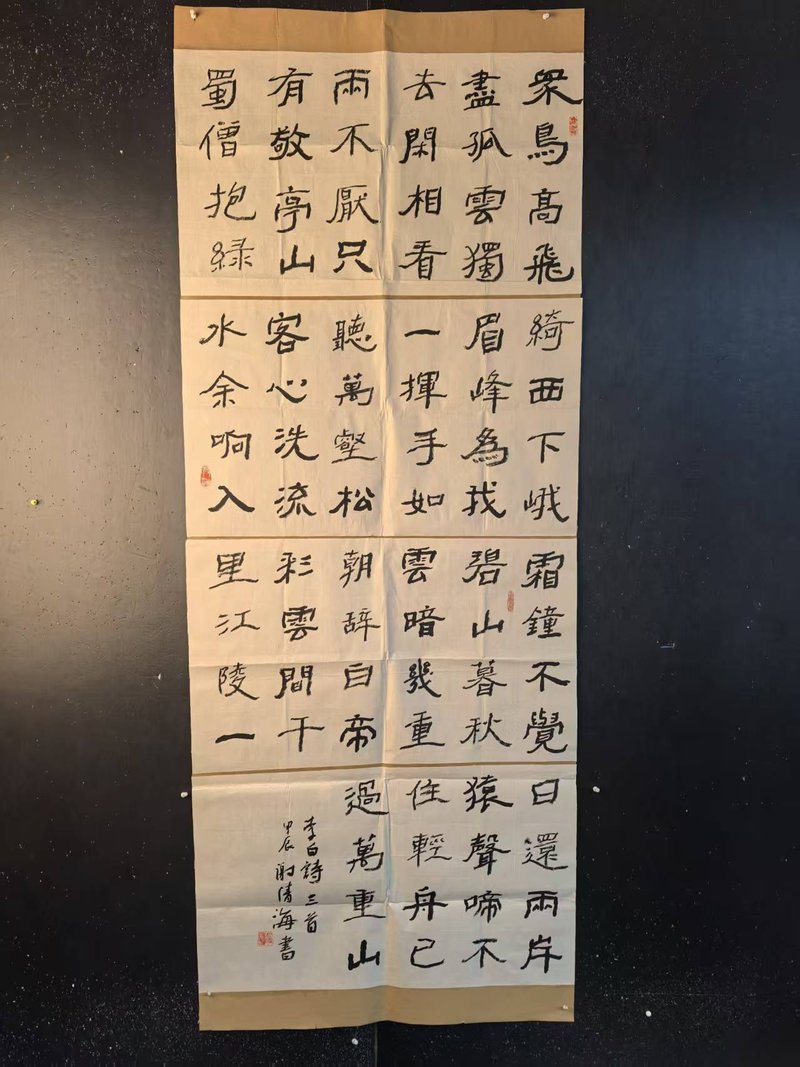 眾鳥高飛
盡孤雲獨
去閑相看
兩不厭只
有敬亭山
蜀僧抱綠
綺西下峨
眉峰為我
一揮手如
聽萬壑松
客心洗流
水余响入
霜鐘不覺
碧山暮秋
雲暗幾重
朝辞白帝
彩雲間千
里江陵一
日還兩岸
猿聲啼不
住輕舟已
過萬重山
李白詩三首
甲辰清海書